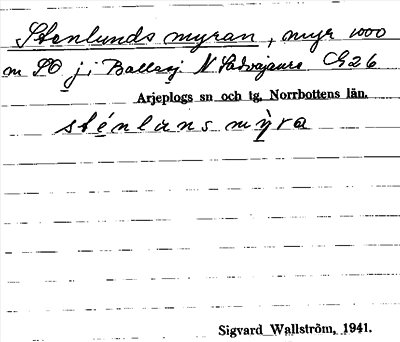 Stenlunds myran, myr 1000
m SO j i Ballasj N. Sadvajaure C926
Arjeplogs sn och tg, Norrbottens län.
sténlùns mỳra
Sigvard Wallström, 1941.